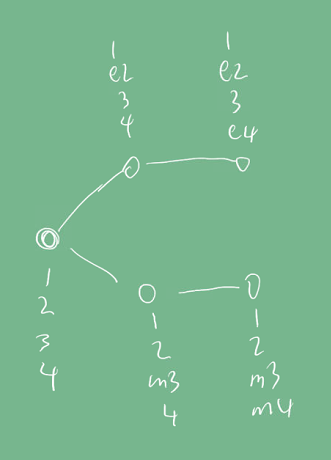 1
e2
3
4
1
e2
3
e4
1
2
3
4
1
2
m3
4
1
2
m3
m4